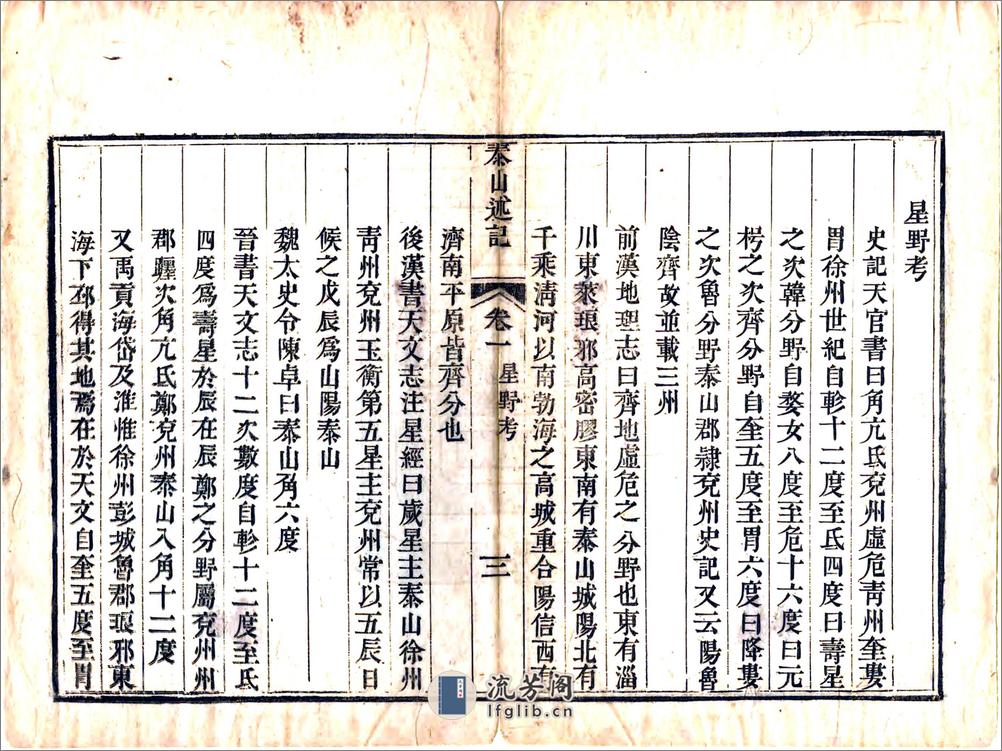 星野考
史記天官書曰角亢氐兗州虛危靑州奎婁
胃徐州世紀自軫十二度至氐四度曰壽星
之次韓分野自婺女八度至危十六度曰元
枵之次齊分野自奎五度至胃六度曰降婁
之次魯分野泰山郡隸兗州史記又云陽魯
陰齊故並載三州
前漢地理志曰齊地虛危之分野也東有淄
川東萊琅邪高密膠東南有泰山城陽北有
千乘淸河以南勃海之高城重合陽信西有
泰山述記
卷一
星野考
三
濟南平原皆齊分也
後漢書天文志注星經曰歲星主泰山徐州
靑州兗州玉衡第五星主兗州常以五辰日
候之戊辰爲山陽泰山
魏太史令陳卓曰泰山角六度
晉書天文志十二次數度自軫十二度至氐
四度爲壽星於辰在辰鄭之分野屬兗州州
郡躔次角亢氐鄭兗州泰山入角十二度
又禹貢海岱及淮惟徐州彭城魯郡琅邪東
海下邳得其地焉在於天文自奎五度至胃
流芳閣
lfglib.cn